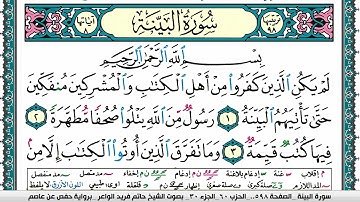 ٩٨ سُورَةُ الْبَيِّنَةِ آيَاتُهَا ٨
بِسْمِ ٱللَّهِ ٱلرَّحْمَٰنِ ٱلرَّحِيمِ
لَمْ يَكُنِ ٱلَّذِينَ كَفَرُوا۟ مِنْ أَهْلِ ٱلْكِتَٰبِ وَٱلْمُشْرِكِينَ مُنفَكِّينَ
حَتَّىٰ تَأْتِيَهُمُ ٱلْبَيِّنَةُ ١ رَسُولٌ مِّنَ ٱللَّهِ يَتْلُوا۟ صُحُفًا مُّطَهَّرَةً ٢
فِيهَا كُتُبٌ قَيِّمَةٌ ٣ وَمَا تَفَرَّقَ ٱلَّذِينَ أُوتُوا۟ ٱلْكِتَٰبَ إِلَّا مِنۢ
سورة البينة _ الصفحة ٥٩٨_ الجزء ٣٠_ الحزب ٦٠ _ بصوت الشيخ حاتم فريد الواعر _ برواية حفص عن عاصم